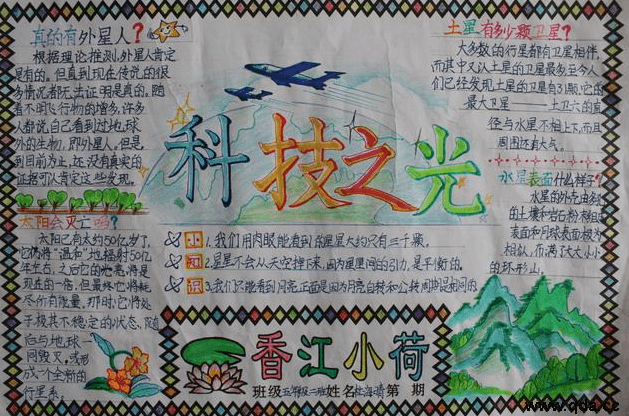 真的有外星人?
根据理论推测,外星人肯定
是有的。但直到现在传说的很
多情况都无法证明是真的。随
着不明飞行物的增多,许多
人都说,自己看到过地球
外的生物,即外星人。但是,
到目前为止,还没有真实的
证据可以肯定这些发现。
太阳会灭亡吗?
太阳已有大约50亿岁了,
它仍将"温和"地辐射50亿
年左右,之后它的亮将是
现在的一倍,但最终它将耗
尽所有能量,那时它将处
于极其不稳定的状态,随
后与地球一
同毁灭,或形
成一个全新的
行星系。
科技之光
小知识
1.我们用肉眼能看到的星星大约只有三千颗。
2.星星不会从天空掉下来,因为星星间的引力是平衡的。
3.我们只能看到月亮正面是因为月亮自转和公转周期是相同的
土星有多少颗卫星?
大多数的行星都有卫星相伴,
而其中又以土星的卫星最多。至今人
们已经发现土星的卫星有31颗,它的
最大卫星——土卫六的直
径与水星不相上下,而且
周围还有大气。
水星表面什么样子?
水星的外壳由多
的土壤和岩石粉末组成
表面和月球表面极为
相似,布满了大大小小
的环形山。
香江小荷
班级五年级二班姓名杜海清第 期
www.qdq.cc